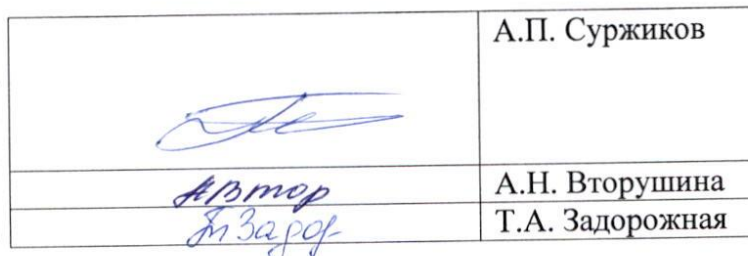 А.П. Суржиков
АВтор А.Н. Вторушина
ТЗадор Т.А. Задорожная